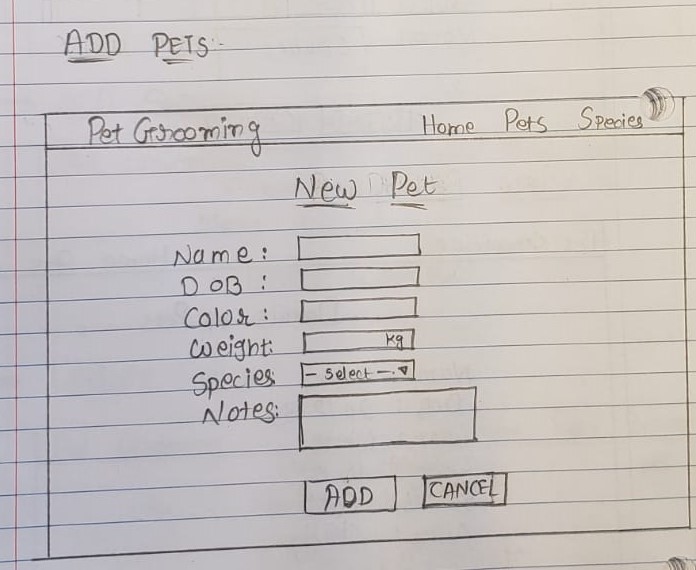 ADD PETS:-
Pet Grooming Home Pets Species
New Pet
Name:
DOB:
Color:
Weight: kg
Species: - Select -
Notes:
ADD CANCEL